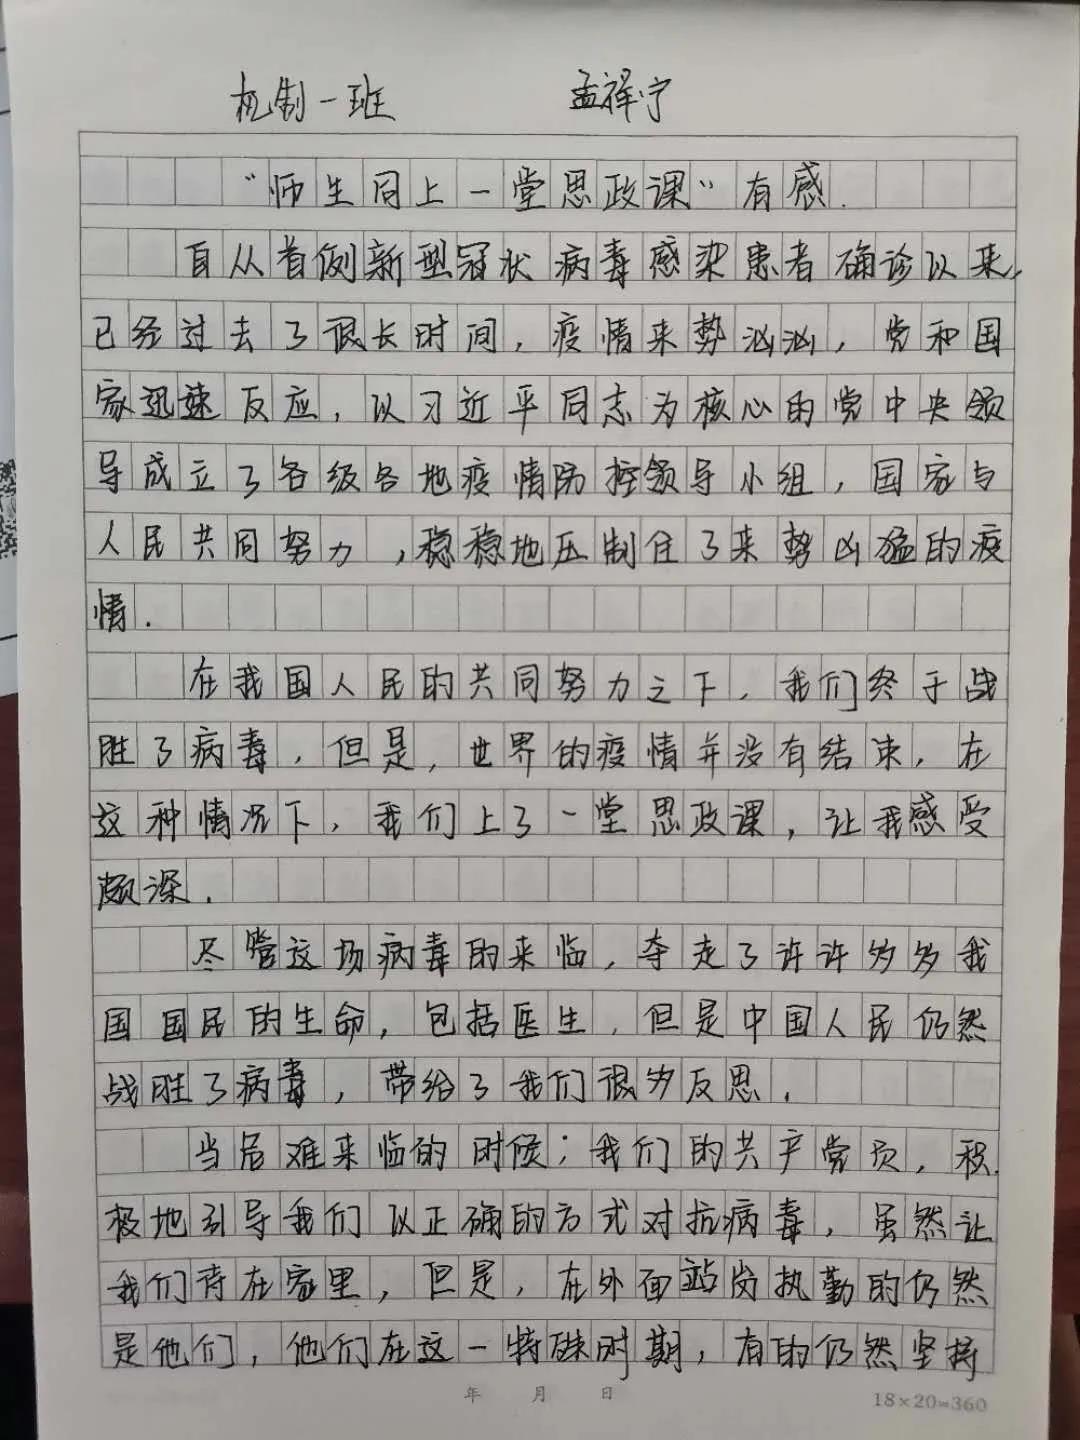 机制一班 孟祥宁
“师生同上一堂思政课”有感.
自从首例新型冠状病毒感染患者确诊以来,
已经过去了很长时间,疫情来势汹汹,党和国
家迅速反应,以习近平同志为核心的党中央领
导成立了各级各地疫情防控领导小组,国家与
人民共同努力,稳稳地压制住了来势凶猛的疫
情.
在我国人民的共同努力之下,我们终于战
胜了病毒,但是,世界的疫情并没有结束,在
这种情况下,我们上了一堂思政课,让我感受
颇深.
尽管这场病毒的来临,夺走了许许多多我
国国民的生命,包括医生,但是中国人民仍然
战胜了病毒,带给了我们很多反思.
当危难来临的时候;我们的共产党员,积
极地引导我们以正确的方式对抗病毒,虽然让
我们待在家里,但是,在外面站岗执勤的仍然
是他们,他们在这一特殊时期,有的仍然坚持
年 月 日
18×20=360